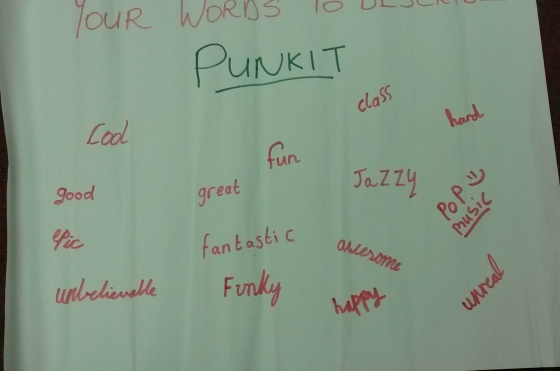 YOUR WORDS TO DESCRIBE
PUNKIT
class
hard
Cool
fun
good
great
JaZZY
POP
music
epic
fantastic
awesome
unbelievable
Funky
happy
unreal